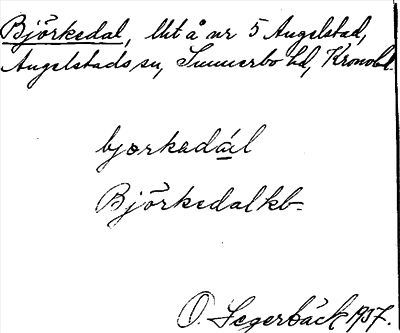 Björkedal, lht å nr 5 Angelstad,
Angelstads sn, Sunnerbo hd, Kronobl.
bjørkadál
Björkedalkb-
O. Segerbäck 1937.